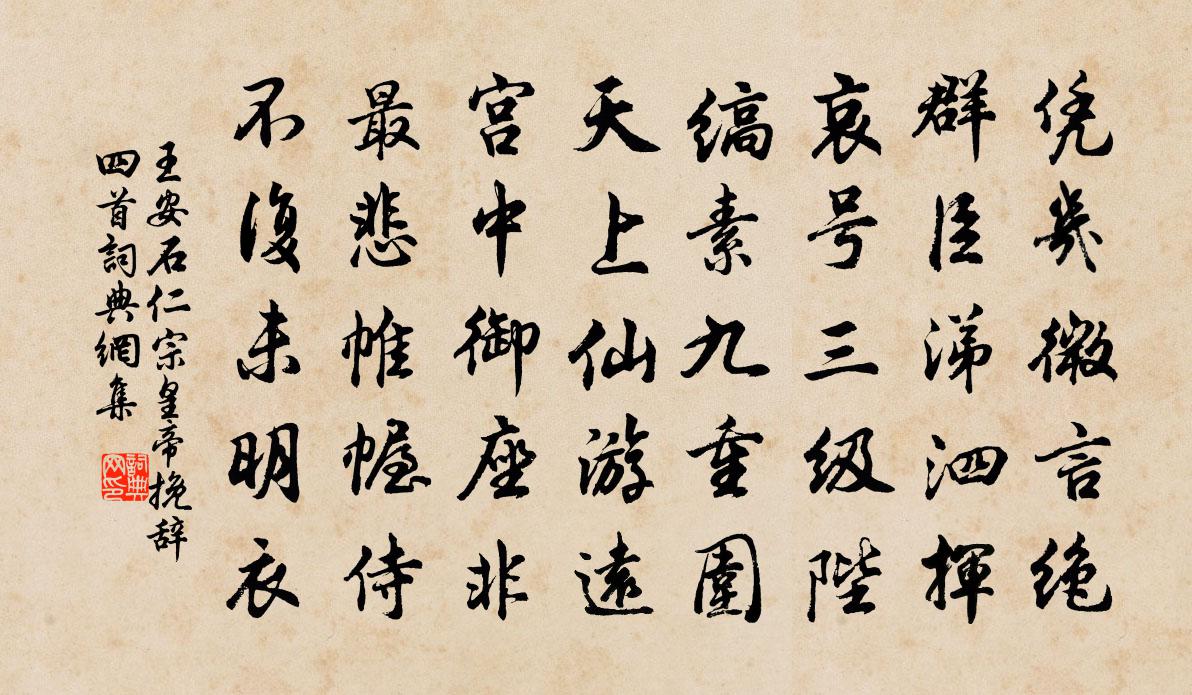 凭幾微言绝
群臣涕泗揮
哀号三级陛
缟素九重圍
天上仙游遠
宫中御座非
最悲帷幄侍
不復未明衣
王安石仁宗皇帝挽辞
四首詞典網集
詞典
网印